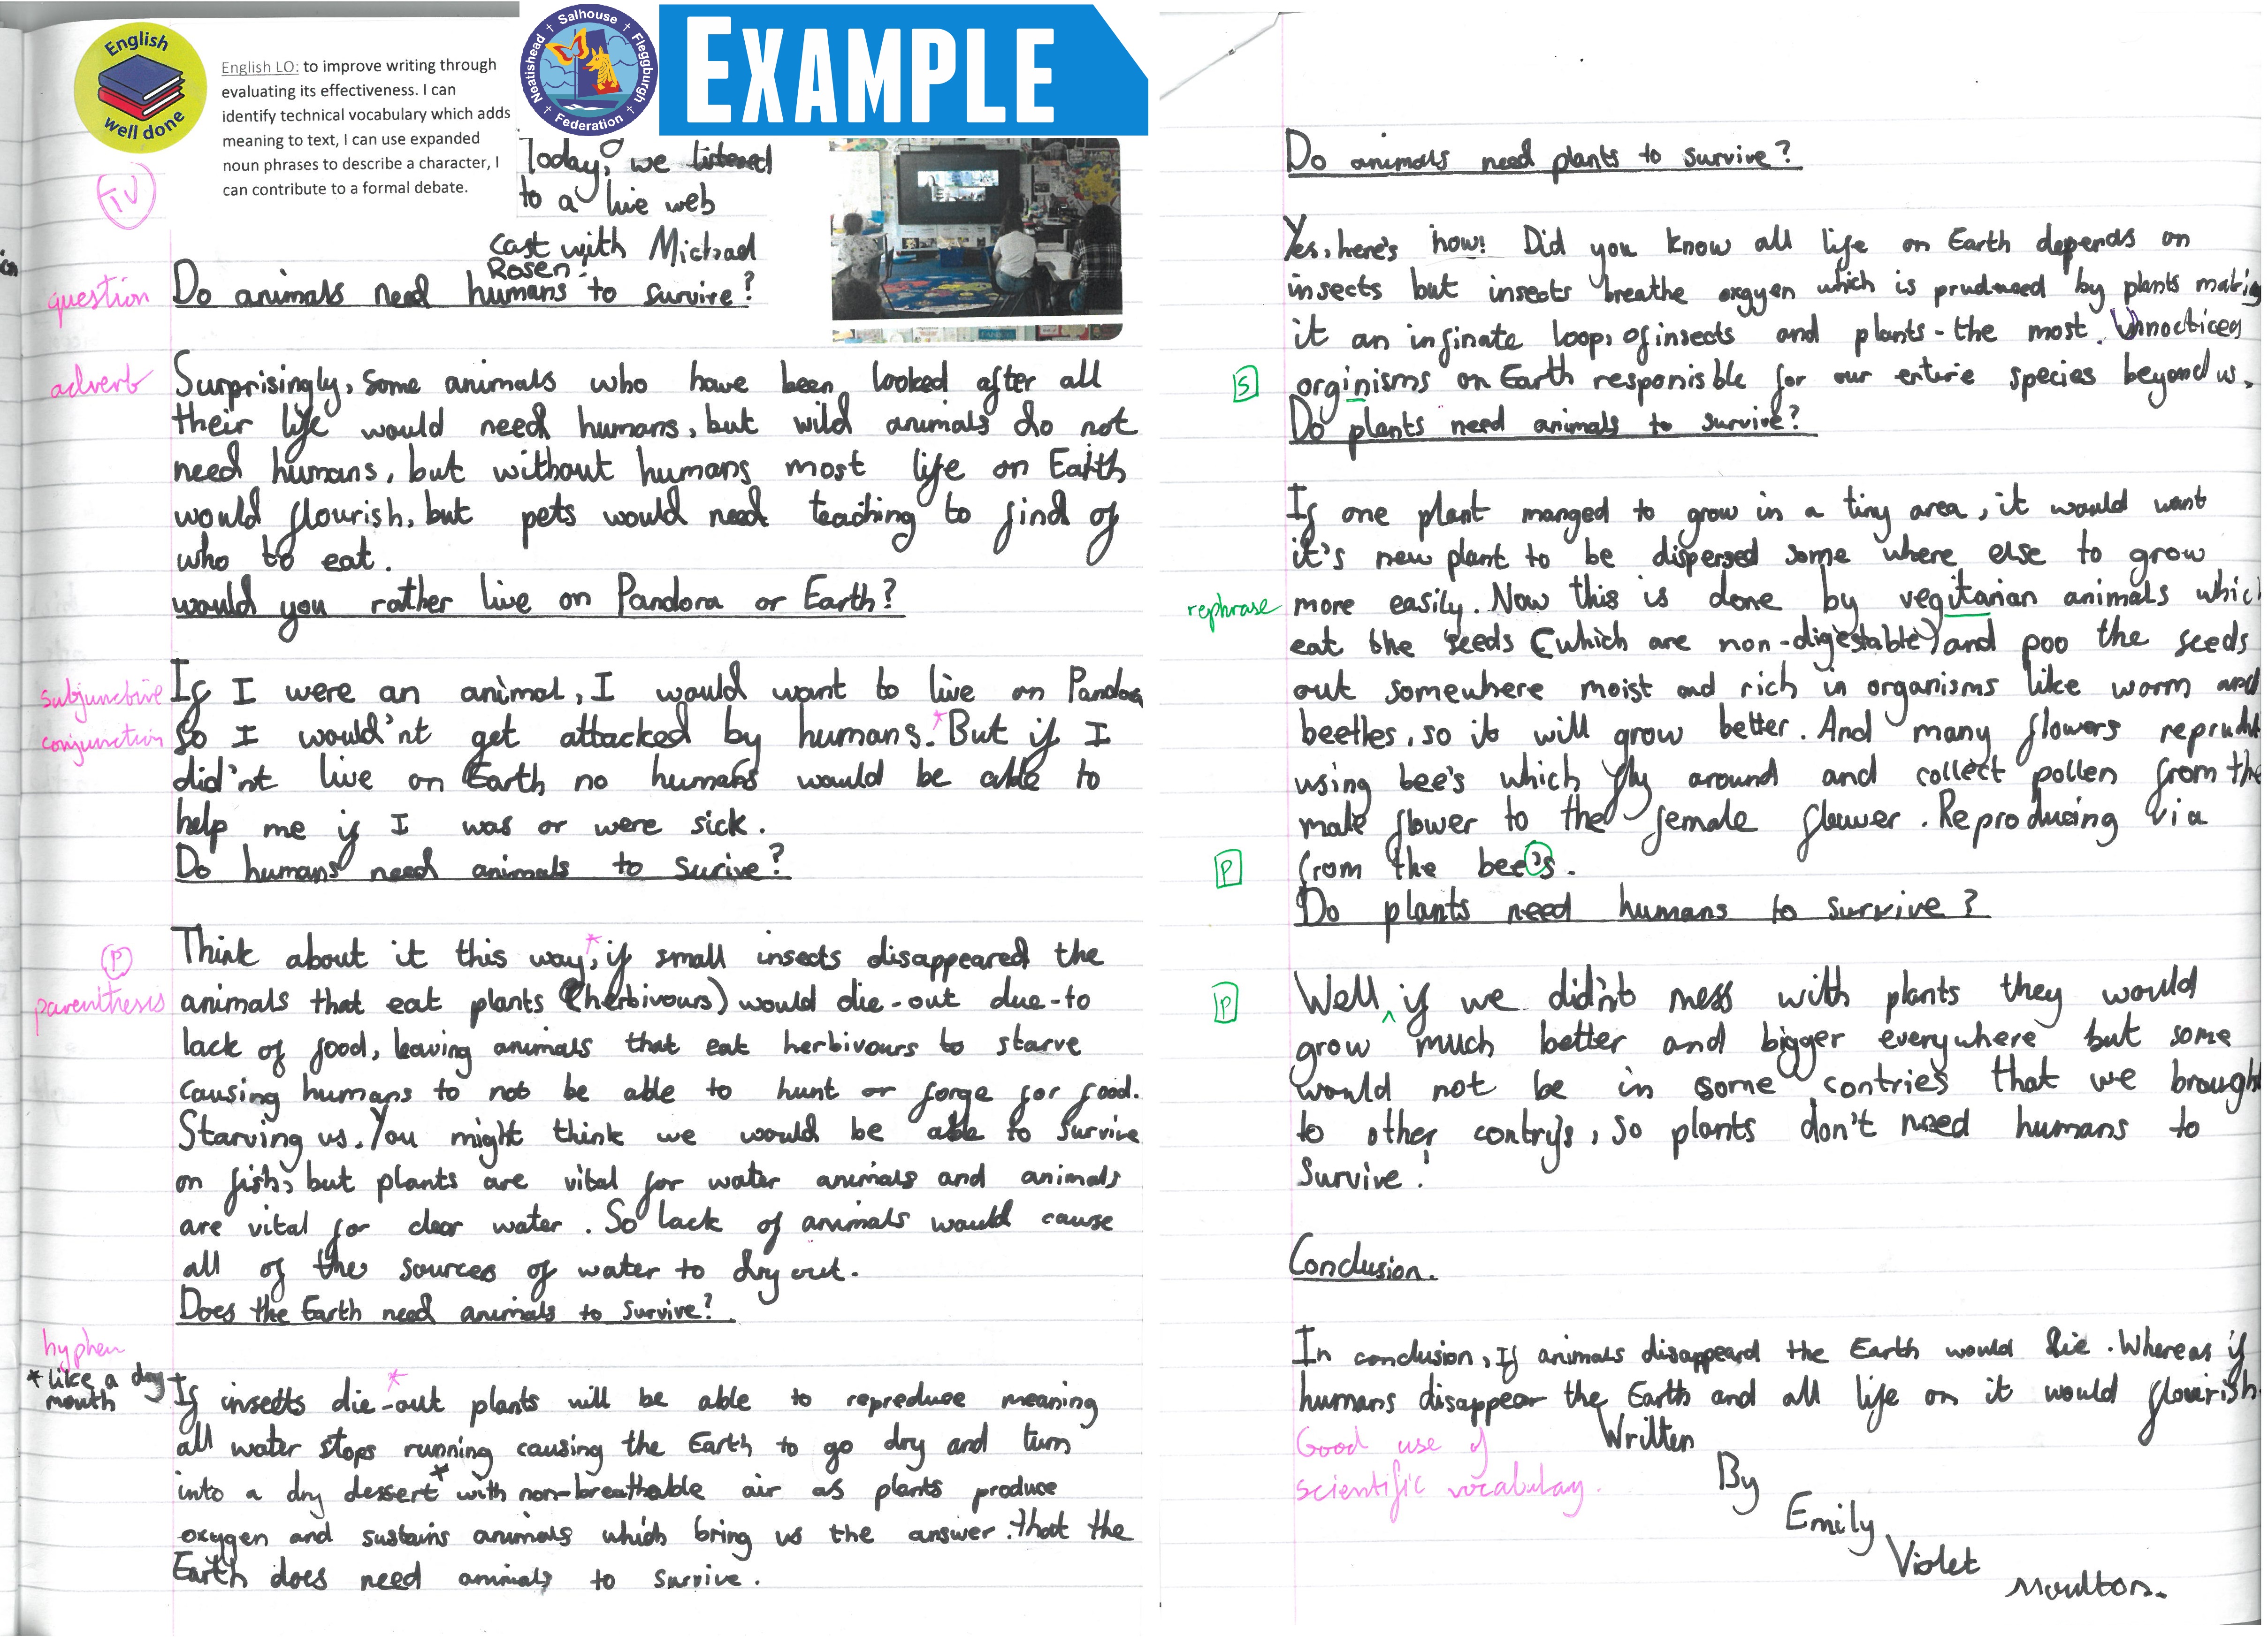 English
well done
English LO: to improve writing through
evaluating its effectiveness. I can
identify technical vocabulary which adds
meaning to text, I can use expanded
noun phrases to describe a character, I
can contribute to a formal debate.
Neatishead Salhouse Fleggburgh
Federation
EXAMPLE
Today, we listened
to a live web
cast with Michael
Rosen.
question
Do animals need humans to survive?
adverb
Surprisingly, some animals who have been looked after all
their life would need humans, but wild animals do not
need humans, but without humans most life on Earth
would flourish, but pets would need teaching to find of
who to eat.
would you rather live on Pandora or Earth?
subjunctive
If I were an animal, I would want to live on Pandora
conjunction
So I would'nt get attacked by humans.* But if I
did'nt live on Earth no humans would be able to
help me if I was or were sick.
Do humans need animals to surive?
P
Think about it this way*, if small insects disappeared the
parenthesis
animals that eat plants (herbivours) would die-out due-to
lack of food, leaving animals that eat herbivours to starve
causing humans to not be able to hunt or forge for food.
Starving us. You might think we would be able to survive
on fish, but plants are vital for water animals and animals
are vital for clear water. So lack of animals would cause
all of the sources of water to dry out.
Does the Earth need animals to survive?
hyphen
*like a dry
mouth
If insects die-out* plants will be able to reproduce meaning
all water stops running causing the Earth to go dry and turn
into a dry dessert* with non-breathable air as plants produce
oxygen and sustains animals which bring us the answer that the
Earth does need animals to survive.
Do animals need plants to survive?
Yes, here's how! Did you know all life on Earth depends on
insects but insects breathe oxgyen which is prudueed by plants making
it an infinate loop, of insects and plants - the most Unocticed
S
orginisms on Earth responisble for our entire species beyond us.
Do plants need animals to survive?
If one plant manged to grow in a tiny area, it would want
it's new plant to be dispersed some where else to grow
rephrase
more easily. Now this is done by vegitarian animals which
eat the seeds (which are non-digestable) and poo the seeds
out somewhere moist and rich in organisms like worm and
beetles, so it will grow better. And many flowers
using bee's which fly around and collect pollen from the
male flower to the female flower. Reproducing via
P
from the bee's.
Do plants need humans to survive?
P
Well ^ if we did'nt mess with plants they would
grow much better and bigger everywhere but some
would not be in some contries that we brought
to other contrys, so plants don't need humans to
survive!
Conclusion.
In conclusion, If animals disappeard the Earth would die. Whereas if
humans disappear the Earth and all life on it would flourish.
Good use of
scientific vocabulary.
Written
By
Emily
Violet
Moulton.